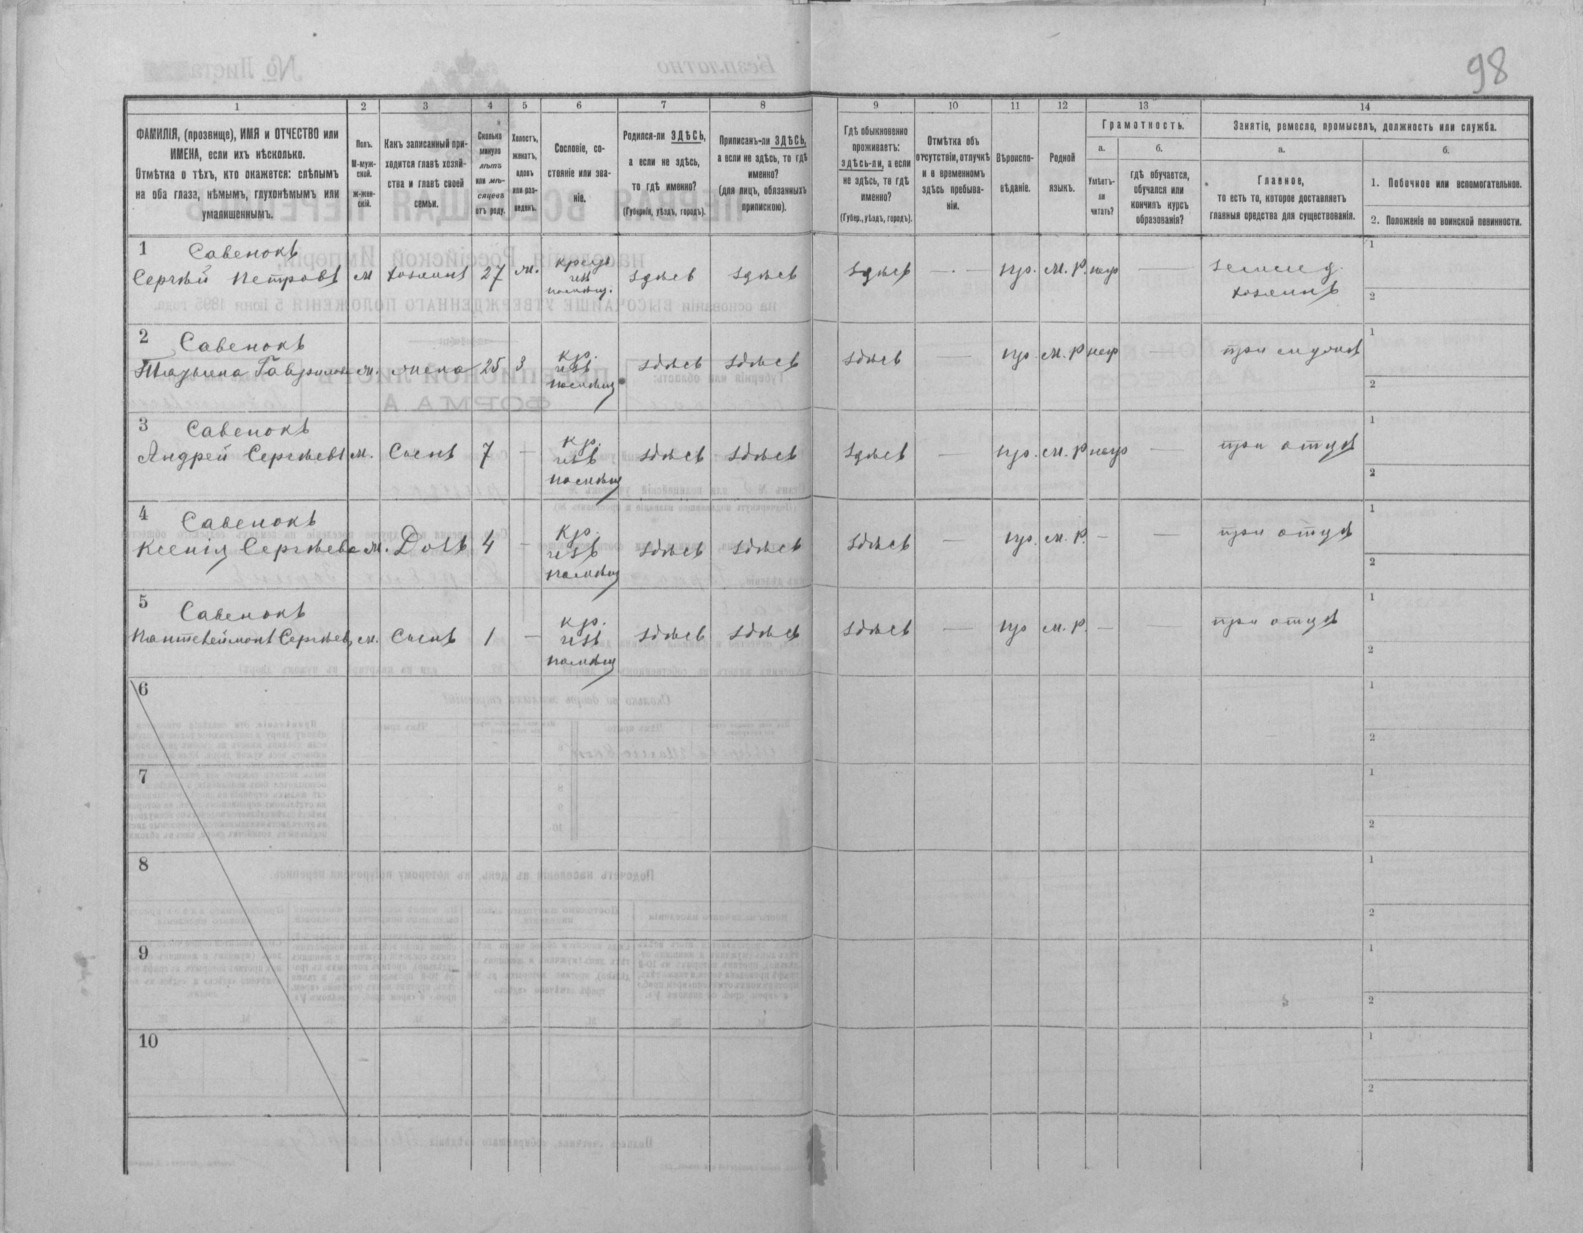 98
1 2 3 4 5 6 7 8 9 10 11 12 13 14
ФАМИЛІЯ, (прозвище), ИМЯ и ОТЧЕСТВО или
ИМЕНА, если ихъ нѣсколько.
Отмѣтка о тѣхъ, кто окажется: слѣпымъ
на оба глаза, нѣмымъ, глухонѣмымъ или
умалишеннымъ.
Полъ.
М-муж-
ской.
ж-жен-
скій.
Какъ записанный при-
ходится главѣ хозяй-
ства и главѣ своей
семьи.
Сколько
минуло
лѣтъ
или мѣ-
сяцевъ
отъ роду.
Холостъ,
женатъ,
вдовъ
или раз-
веденъ.
Сословіе, со-
стояніе или зва-
ніе.
Родился-ли ЗДѢСЬ,
а если не здѣсь,
то гдѣ именно?
(Губернія, уѣздъ, городъ).
Приписанъ-ли ЗДѢСЬ,
а если не здѣсь, то гдѣ
именно?
(для лицъ, обязанныхъ
припискою).
Гдѣ обыкновенно
проживаетъ:
здѣсь-ли, а если
не здѣсь, то гдѣ
именно?
(Губер., уѣздъ, городъ).
Отмѣтка объ
отсутствіи, отлучкѣ
и о временномъ
здѣсь пребыва-
ніи.
Вѣроиспо-
вѣданіе.
Родной
языкъ.
Грамотность.
а.
Умѣетъ-
ли
читать?
б.
гдѣ обучается,
обучался или
кончилъ курсъ
образованія?
Занятіе, ремесло, промыселъ, должность или служба.
а.
Главное,
то есть то, которое доставляетъ
главныя средства для существованія.
б.
1. Побочное или вспомогательное.
2. Положеніе по воинской повинности.
1 Савенокъ
Сергѣй Петровъ м хозяинъ 27 ж. крестъ
изъ
помѣщ. здѣсь здѣсь здѣсь — пр. м. р. негр — землед.
хозяинъ
1
2
2 Савенокъ
Татьяна Гаврилова ж. жена 25 з кр.
изъ
помѣщ здѣсь здѣсь здѣсь — пр м. р негр — при мужѣ
1
2
3 Савенокъ
Андрей Сергѣевъ м. Сынъ 7 — кр.
изъ
помѣщ здѣсь здѣсь здѣсь — пр. м. р негр — при отцѣ
1
2
4 Савенокъ
Ксенія Сергѣева ж. Дочь 4 — кр.
изъ
помѣщ здѣсь здѣсь здѣсь — пр. м. р. — — при отцѣ
1
2
5 Савенокъ
Пантелеймонъ Сергѣев м. Сынъ 1 — кр.
изъ
помѣщ здѣсь здѣсь здѣсь — пр м. р. — — при отцѣ
1
2
6
1
2
7
1
2
8
1
2
9
1
2
10
1
2